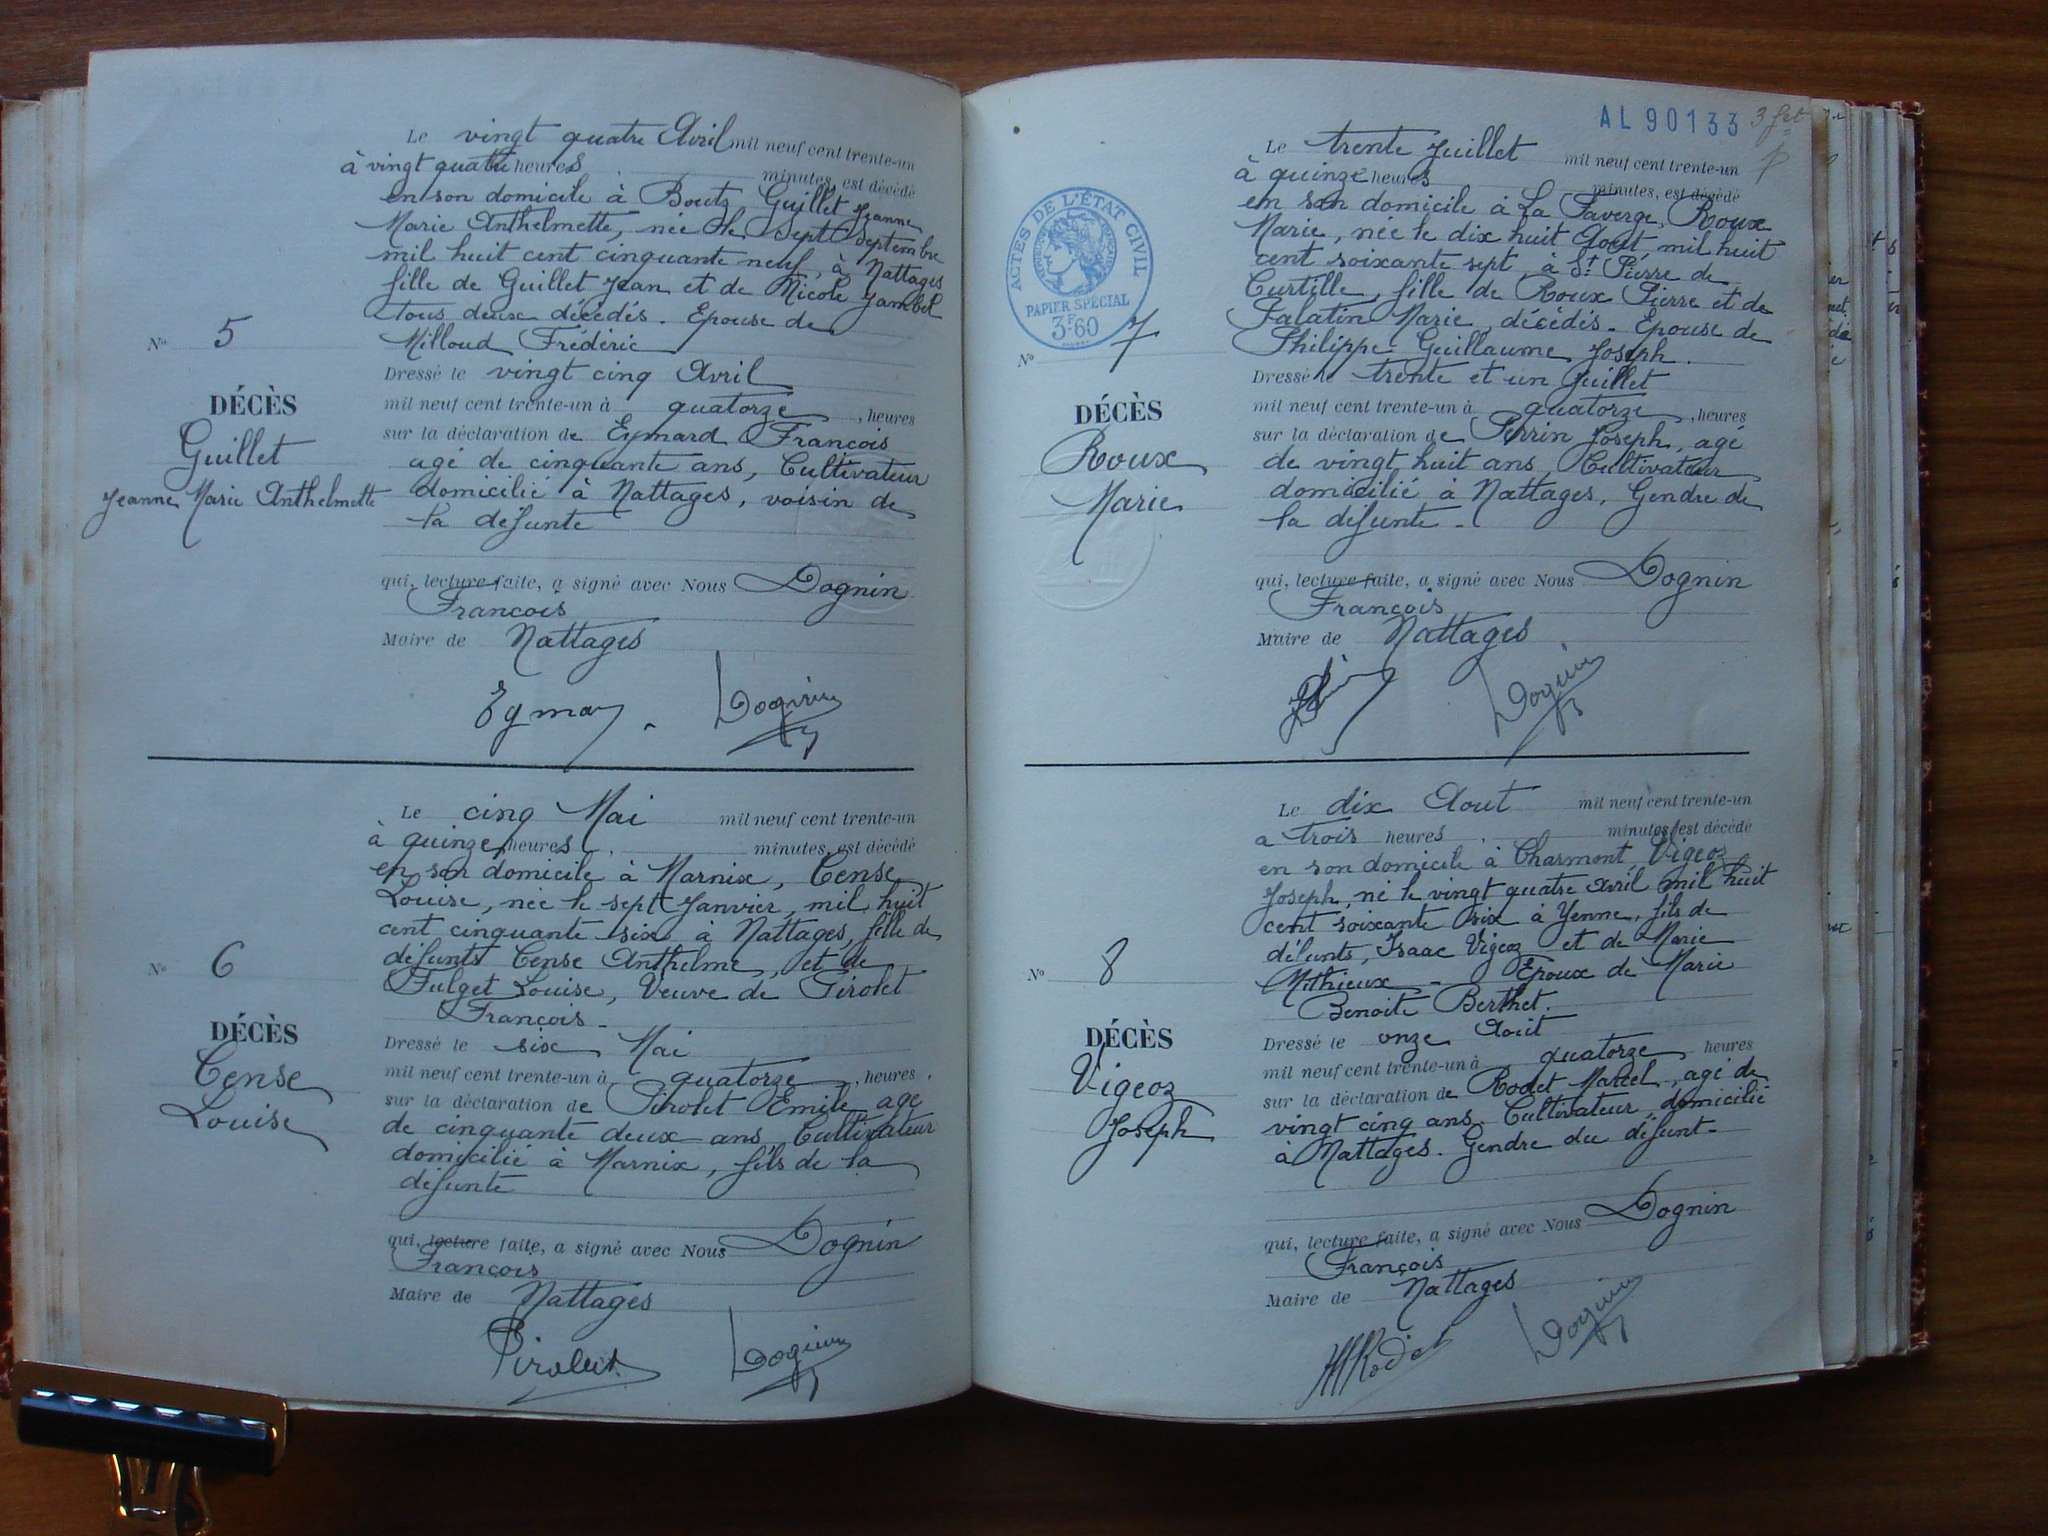 Le vingt quatre Avril mil neuf cent trente-un
à vingt quatre heures minutes, est décédé
en son domicile à Boutz Guillet Jeanne
Marie Anthelmette, née le sept Septembre
mil huit cent cinquante neuf, à Nattages
fille de Guillet Jean et de Nicole Jambet
tous deux décédés. Epouse de
Milloud Frédéric
Dressé le vingt cinq Avril
mil neuf cent trente-un à quatorze, heures
sur la déclaration de Eymard François
agé de cinquante ans, Cultivateur
domicilié à Nattages, voisin de
la defunte
qui, lecture faite, a signé avec Nous Dognin
François
Maire de Nattages
Eymar Dognin
N° 5
DÉCÈS
Guillet
Jeanne Marie Anthelmette
Le cinq Mai mil neuf cent trente-un
à quinze heures minutes, est décédé
en son domicile à Marnix, Cense
Louise, née le sept Janvier, mil huit
cent cinquante six à Nattages, fille de
defunts Cense Anthelme, et de
Fulget Louise, Veuve de Pirolet
François.
Dressé le six Mai
mil neuf cent trente-un à quatorze, heures
sur la déclaration de Pirolet Emile, age
de cinquante deux ans, Cultivateur
domicilié à Marnix, fils de la
defunte
qui, lecture faite, a signé avec Nous Dognin
François
Maire de Nattages
Pirolet Dognin
N° 6
DÉCÈS
Cense
Louise
AL 90133
Le trente Juillet mil neuf cent trente-un
à quinze heures minutes, est décédé
en son domicile à La Faverge, Roux
Marie, née le dix huit Août, mil huit
cent soixante sept, à St Pierre de
Curtille, fille de Roux Pierre et de
Palatin Marie, décédés. Epouse de
Philippe Guillaume Joseph.
Dressé le trente et un Juillet
mil neuf cent trente-un à quatorze, heures
sur la déclaration de Perrin Joseph, agé
de vingt huit ans, Cultivateur
domicilié à Nattages, Gendre de
la défunte.
qui, lecture faite, a signé avec Nous Dognin
François
Maire de Nattages
Dognin
ACTES DE L'ÉTAT CIVIL
PAPIER SPÉCIAL
3F.60
N° 7
DÉCÈS
Roux
Marie
Le dix Aout mil neuf cent trente-un
a trois heures minutes, est décédé
en son domicile à Charmont, Vigeoz
Joseph, né le vingt quatre Avril mil huit
cent soixante six à Yenne, fils de
défunts, Isaac Vigeoz et de Marie
Mithieux. Epoux de Marie
Benoite Berthet.
Dressé le onze Août
mil neuf cent trente-un à quatorze heures
sur la déclaration de Rodet Marcel, agé de
vingt cinq ans. Cultivateur, domicilié
à Nattages. Gendre du défunt.
qui, lecture faite, a signé avec Nous Dognin
François
Maire de Nattages
MRodet Dognin
N° 8
DÉCÈS
Vigeoz
Joseph